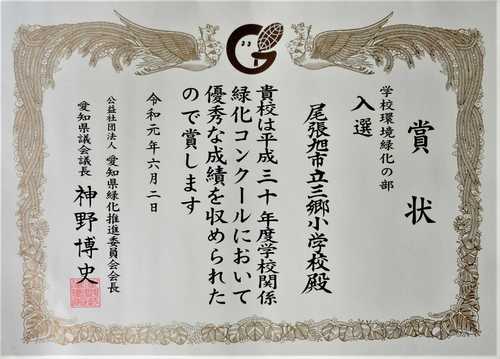 賞状
学校環境緑化の部
入選
尾張旭市立三郷小学校殿
貴校は平成三十年度学校関係
緑化コンクールにおいて
優秀な成績を収められた
ので賞します
令和元年六月二日
公益社団法人 愛知県緑化推進委員会会長
愛知県議会議長 神野博史